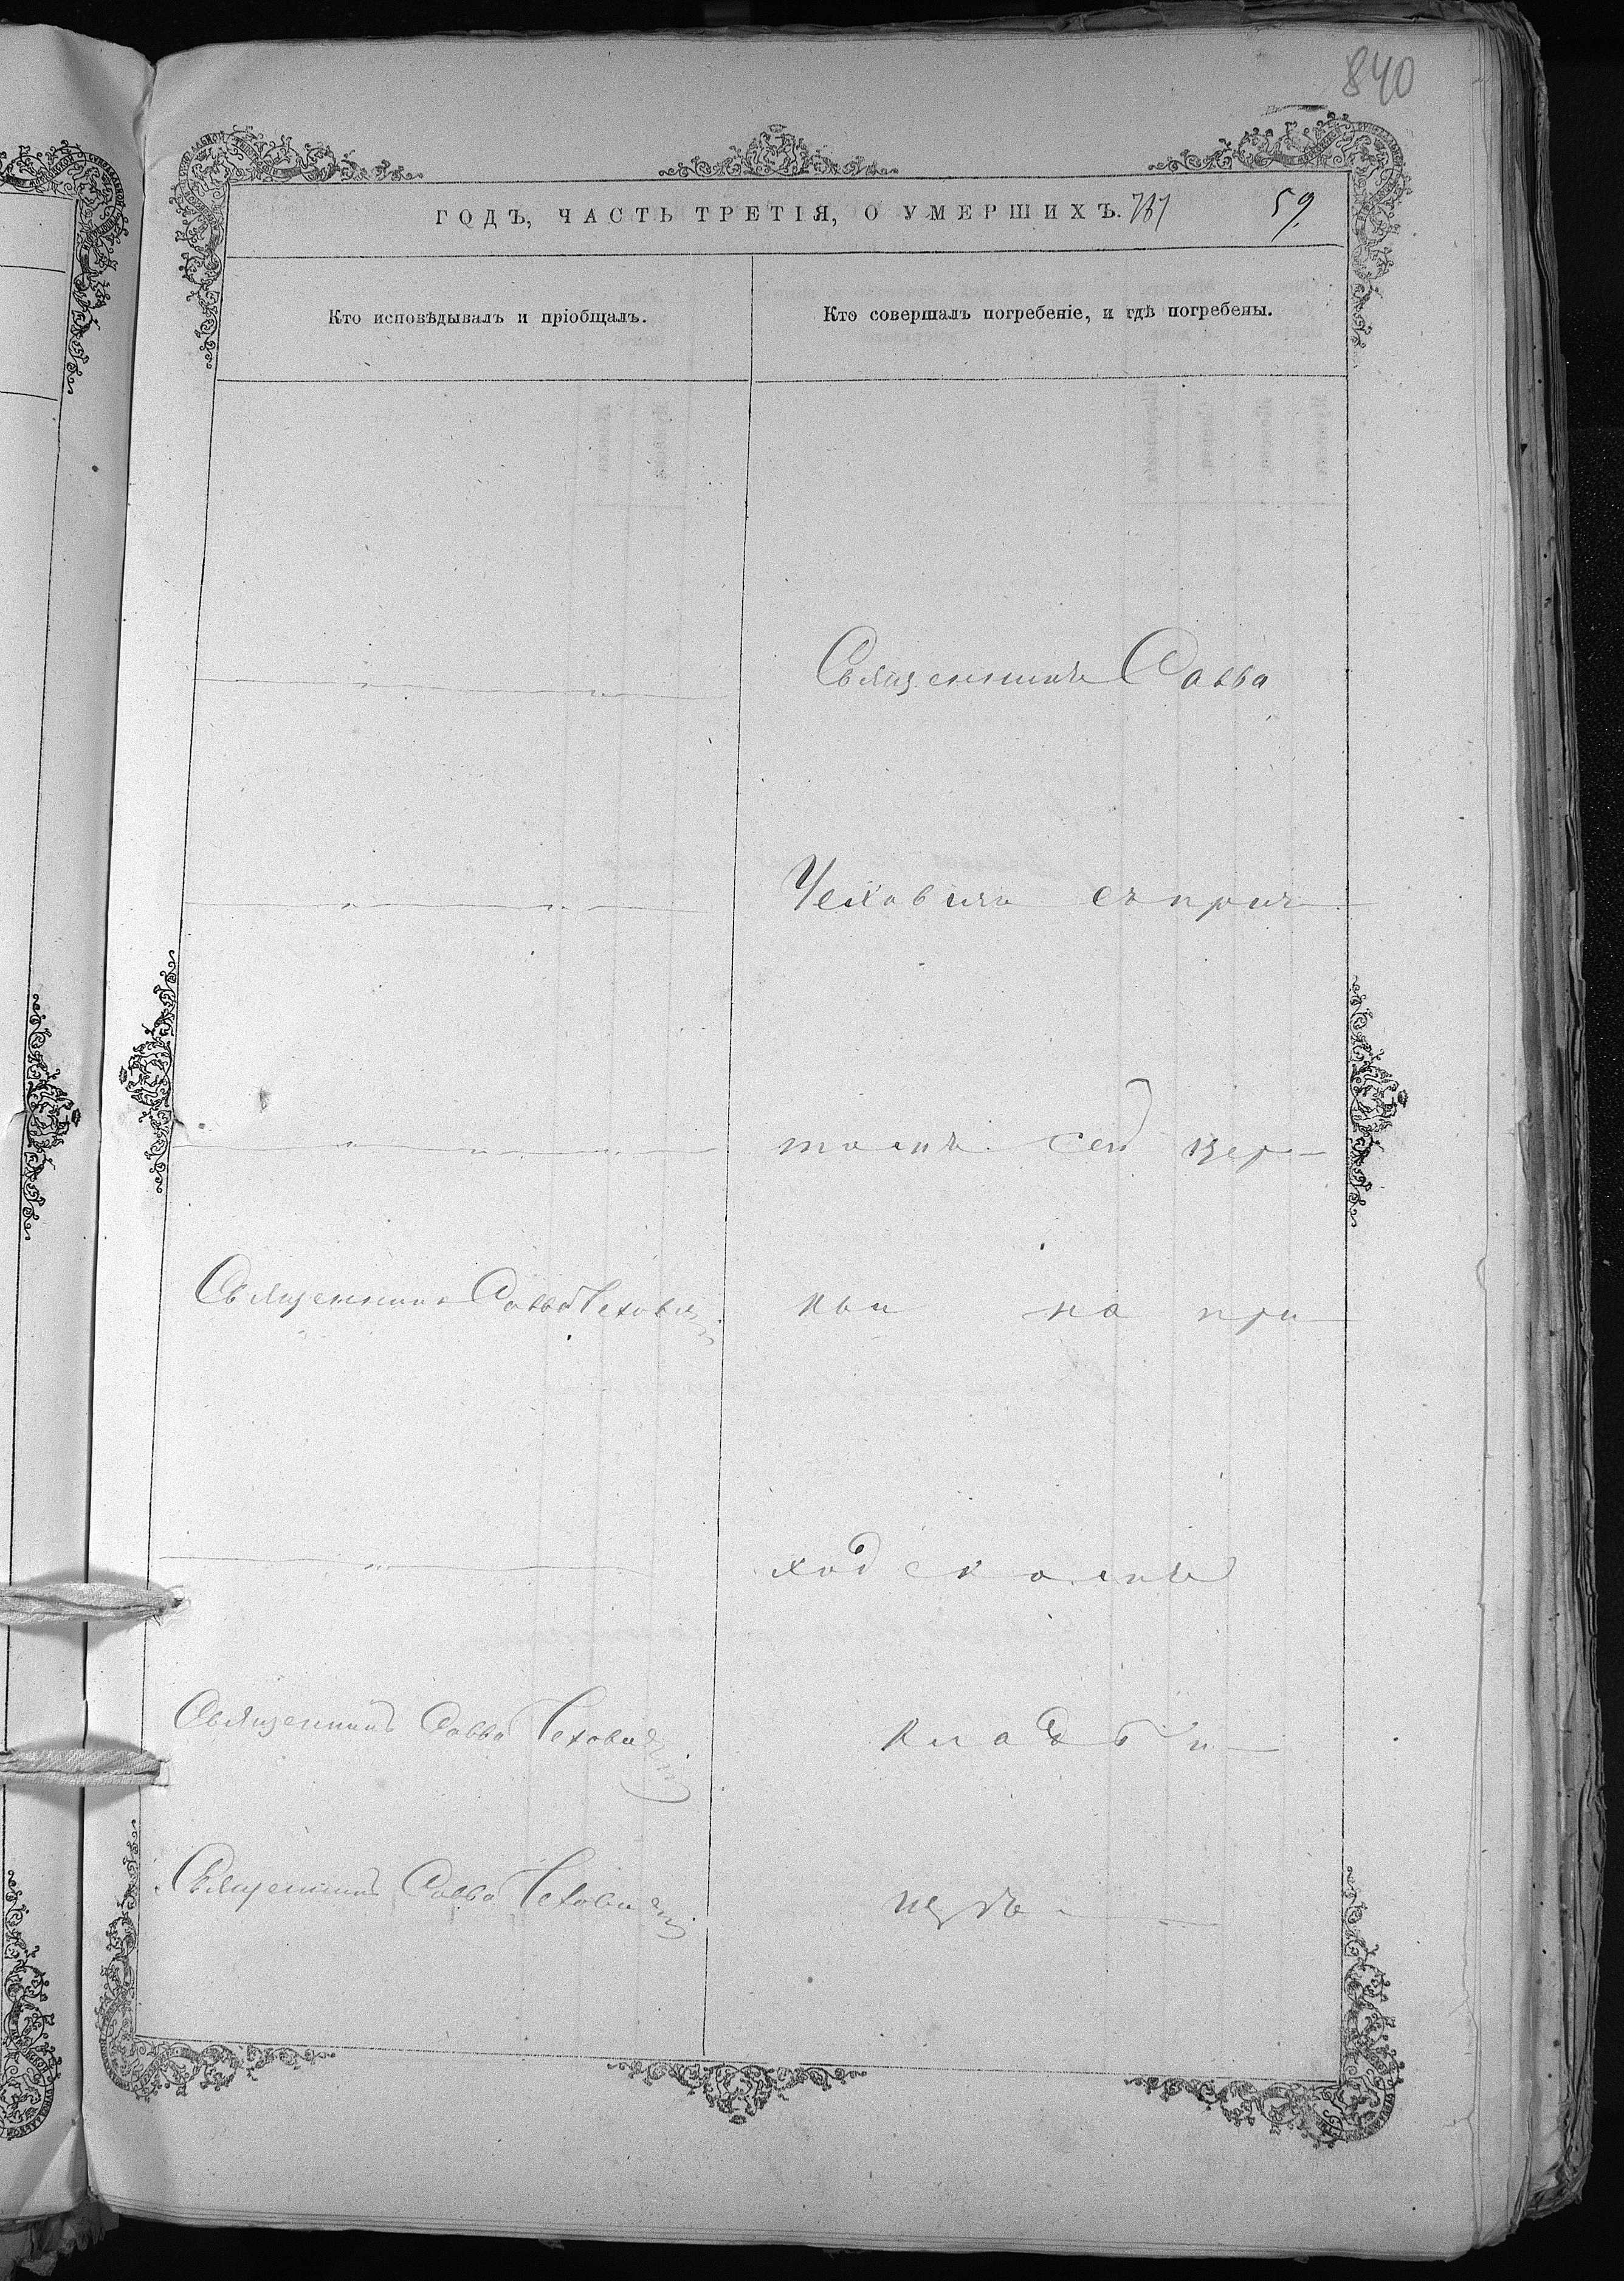 840
ГОДЪ, ЧАСТЬ ТРЕТІЯ, О УМЕРШИХЪ. 59.
Кто исповѣдывалъ и пріобщалъ.
Кто совершалъ погребеніе, и гдѣ погребены.
Священникъ Савва
съ прич-
томъ сей цер-
Священникъ Савва
кви на при
ходскомъ
Священникъ Савва
кладби-
Священникъ Савва
щѣ